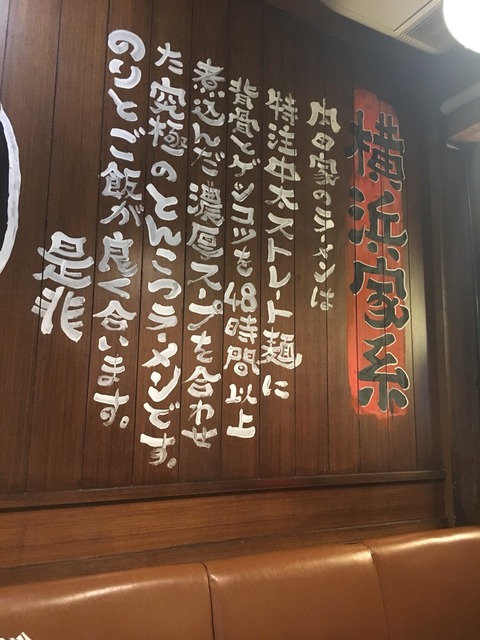 横浜家系
内田家のラーメンは
特注中太ストレート麺に
背骨とゲンコツを48時間以上
煮込んだ濃厚スープを合わせ
た究極のとんこつラーメンです。
のりとご飯が良く合います。
是非